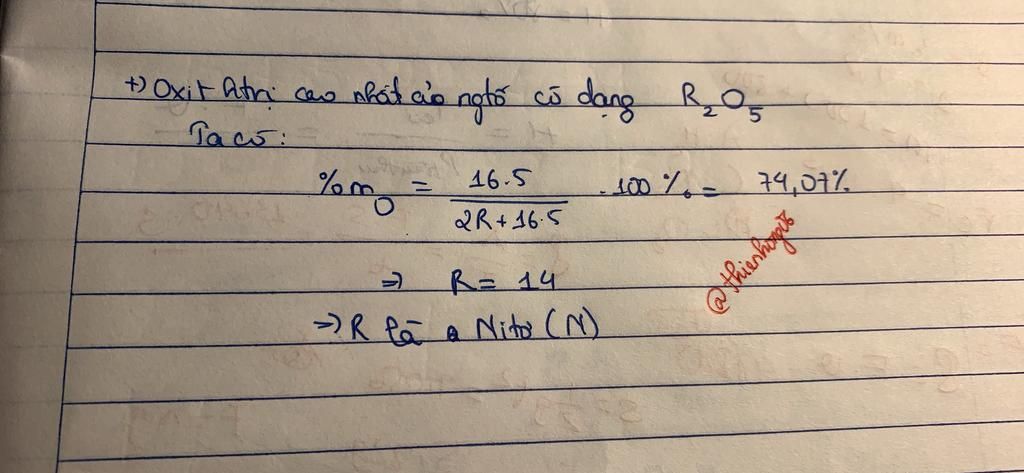 +) Oxit htrị cao nhất của ngtố có dạng R₂O₅
Ta có:
%m_O = \frac{16.5}{2R+16.5} . 100% = 74,07%
=> R = 14
=> R là Nitơ (N)
@thienhongi8